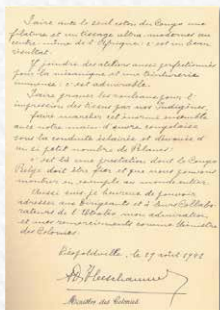 Faire avec le seul coton du Congo une
filature et un tissage ultra modernes au
centre même de l'Afrique: c'est un beau
résultat.
Y joindre des ateliers aussi perfectionnés
pour la mécanique et une teinturerie
immense: c'est admirable.
Faire graver les rouleaux pour l'
impression des tissus par nos Indigènes,
faire marcher cet énorme ensemble
avec notre main d'œuvre congolaise
sous la conduite éclairée et dévouée d'
un si petit nombre de Blancs:
c'est là une prestation dont le Congo
Belge doit être fier et que nous pouvons
montrer en exemple au monde entier.
Aussi suis-je heureux de pouvoir
adresser aux Dirigeants et à leurs Collabo-
rateurs de l'Utexléo mon admiration
et mes remerciements comme Ministre
des Colonies.
Léopoldville, le 29 août
Ministre des Colonies